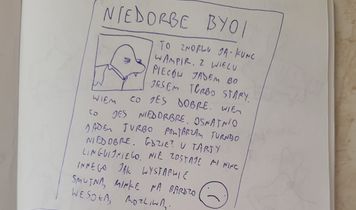 NIEDORBE BYOI
TO ZNOWU JA-KUNC
WAMPIR. Z WIELU
PIECUW JADEM BO
JESEM TURBO STARY.
WIEM CO JES DOBRE. WIEM
CO JES NIEDORBRE. OSNATNIO
JADEM TURBO POWTARZAM TURNBO
NIEDOBRE. GDZIEŚ U TARTY
LINGUIJNEGO. NIE ZOSTAJE MI NINC
INNEGO JAK WYSTAPIĆ
SMUTNĄ MINKE NA BARDZO
WESOŁĄ,